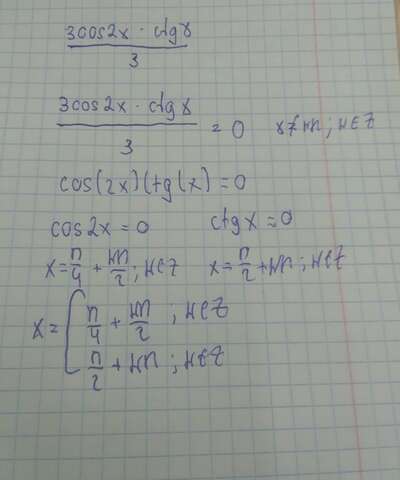 3cos2x · ctgx
3
3cos2x · ctgx
3
= 0 x≠πn; n∈Z
cos(2x)ctg(x)=0
cos2x=0 ctgx=0
x=π/4 + πn/2; n∈Z x=π/2+πn; n∈Z
x= [ π/4 + πn/2 ; n∈Z
π/2 + πn ; n∈Z